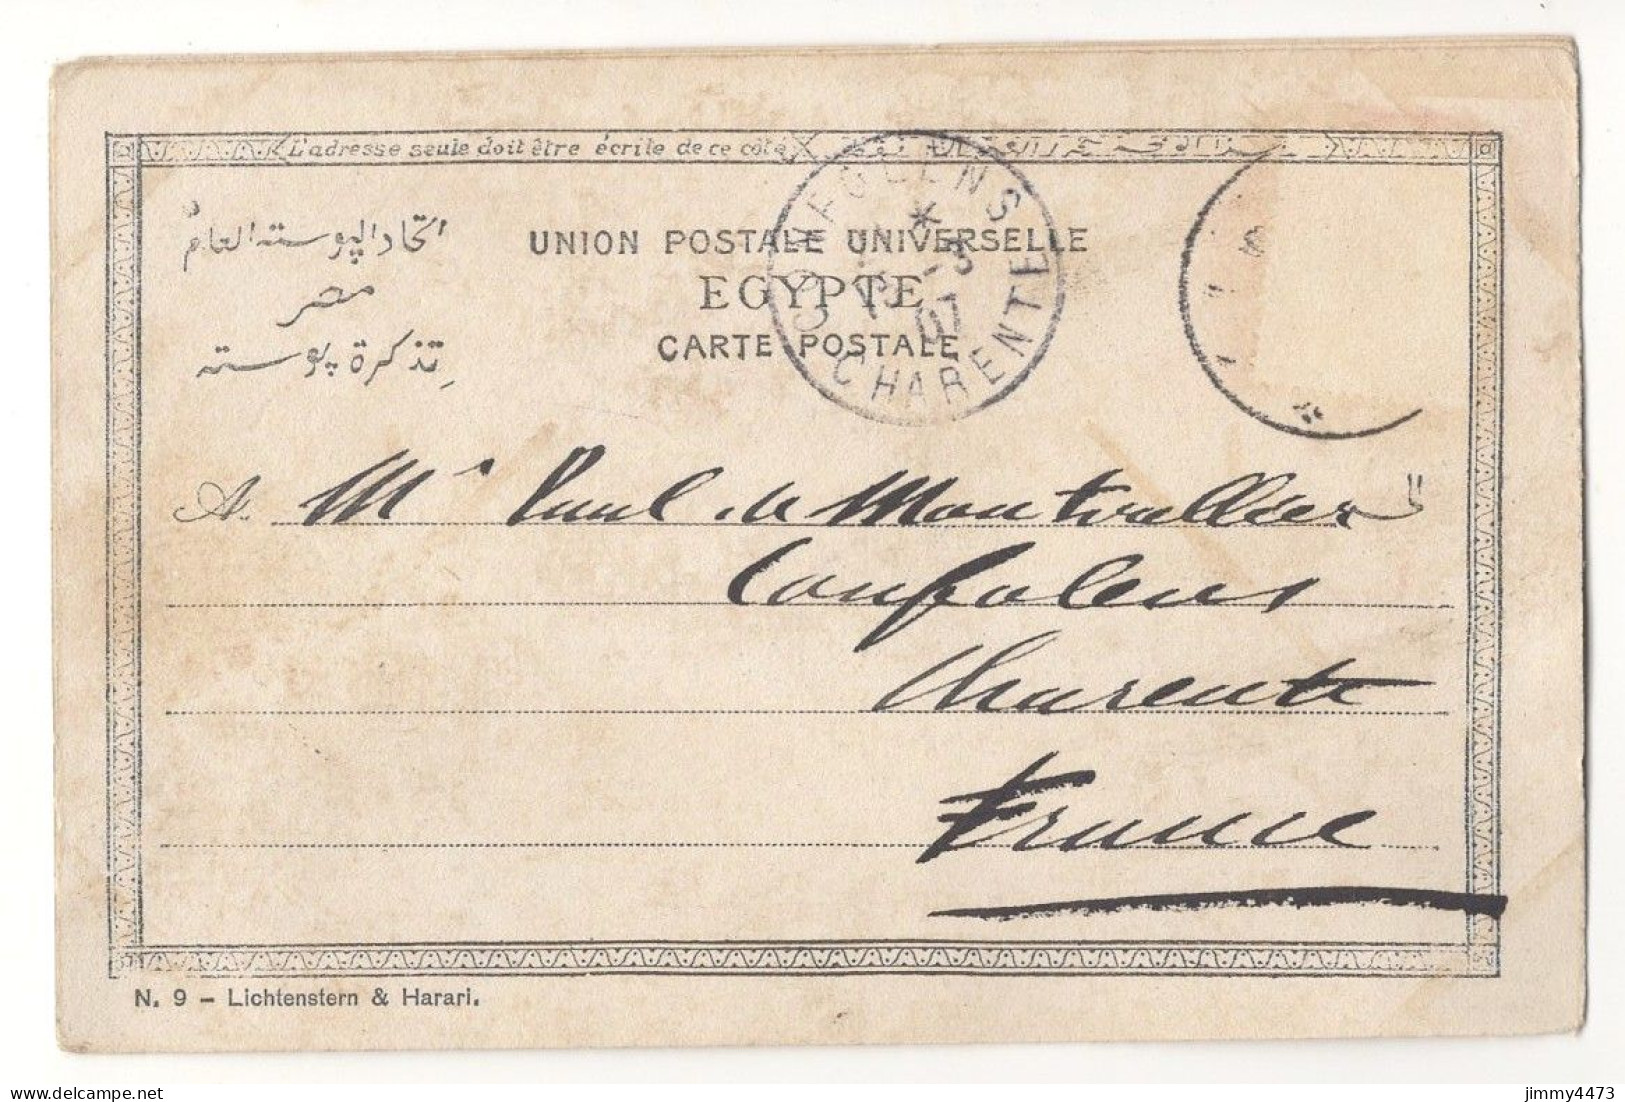 L'adresse seule doit être écrite de ce côté
اتحاد البوسته العام
UNION POSTALE UNIVERSELLE
مصر
EGYPTE
تذكرة بوسته
CARTE POSTALE
CONFOLENS
* -3 07
CHARENTE
A. Mr Paul de Montvallier
Confolens
Charente
France
N. 9 – Lichtenstern & Harari.
delcampe.net
jimmy4473